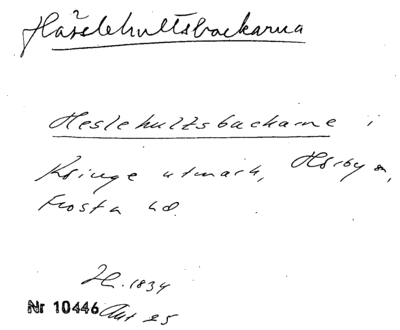 Häslehultsbackarna
Heslehultsbackarne i
Kringe utmark, Hörby sn,
Frosta hd.
H. 1834
Nr 10446 Akt 25